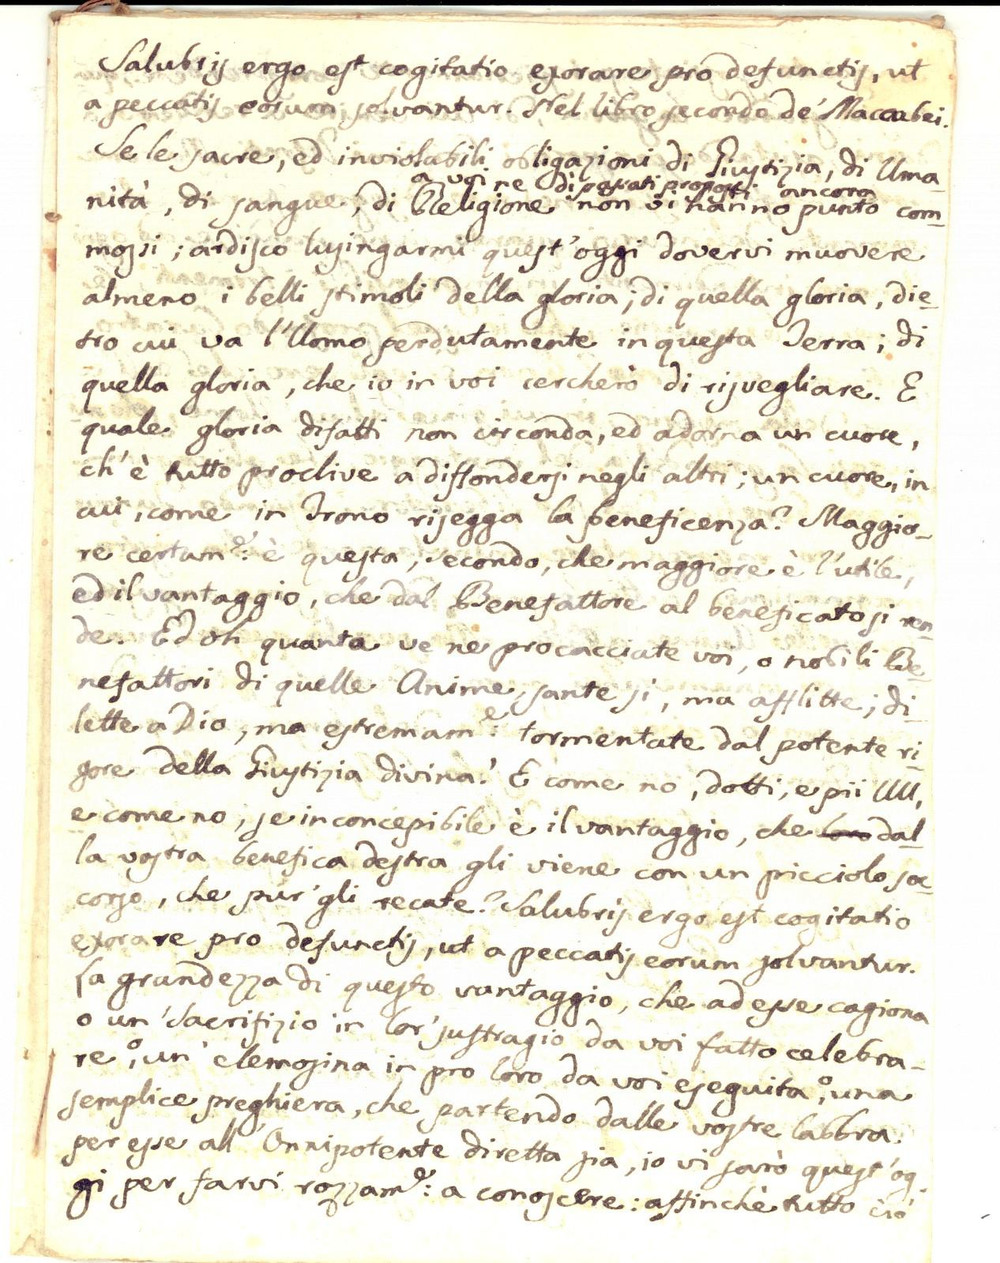 Salubris ergo est cogitatio exorare pro defunctis, ut
a peccatis eorum solvantur. Nel libro secondo de' Maccabei.
Se le sacre, ed inviolabili obligazioni di Giustizia, di Uma-
a voi ne' dì passati proposti ancora
nità, di sangue, di Religione non vi hanno punto com-
mossi; ardisco lusingarmi quest'oggi dovervi muovere
almeno i belli stimoli della gloria; di quella gloria, die-
tro cui va l'Uomo perdutamente in questa Terra; di
quella gloria, che io in voi cercherò di risvegliare. E
quale gloria difatti non circonda, ed adorna un cuore,
ch'è tutto proclive a diffondersi negli altri; un cuore, in
cui, come in Trono risegga la beneficenza? Maggio-
re certam.e è questa, secondo, che maggiore è l'utile,
ed il vantaggio, che dal Benefattore al beneficato si ren-
de. Ed oh quanta ve ne procacciate voi, o nobili Be-
nefattori di quelle Anime, sante sì, ma afflitte; di-
lette a Dio, ma estremam.e tormentate dal potente ri-
gore della Giustizia divina! E come no, dotti, e pii UU,
e come no, se inconcepibile è il vantaggio, che loro dal-
la vostra benefica destra gli viene con un picciolo soc-
corso, che pur'gli recate? Salubris ergo est cogitatio
exorare pro defunctis, ut a peccatis eorum solvantur.
La grandezza di questo vantaggio, che ad esse cagiona
o un'Sacrifizio in lor'suffragio da voi fatto celebra-
re, o un'elemosina in pro loro da voi eseguita, o una
semplice preghiera, che partendo dalle vostre labbra
per esse all'Onnipotente diretta sia, io vi farò quest'og-
gi per farvi rozzam.e: a conoscere: affinchè tutto ciò